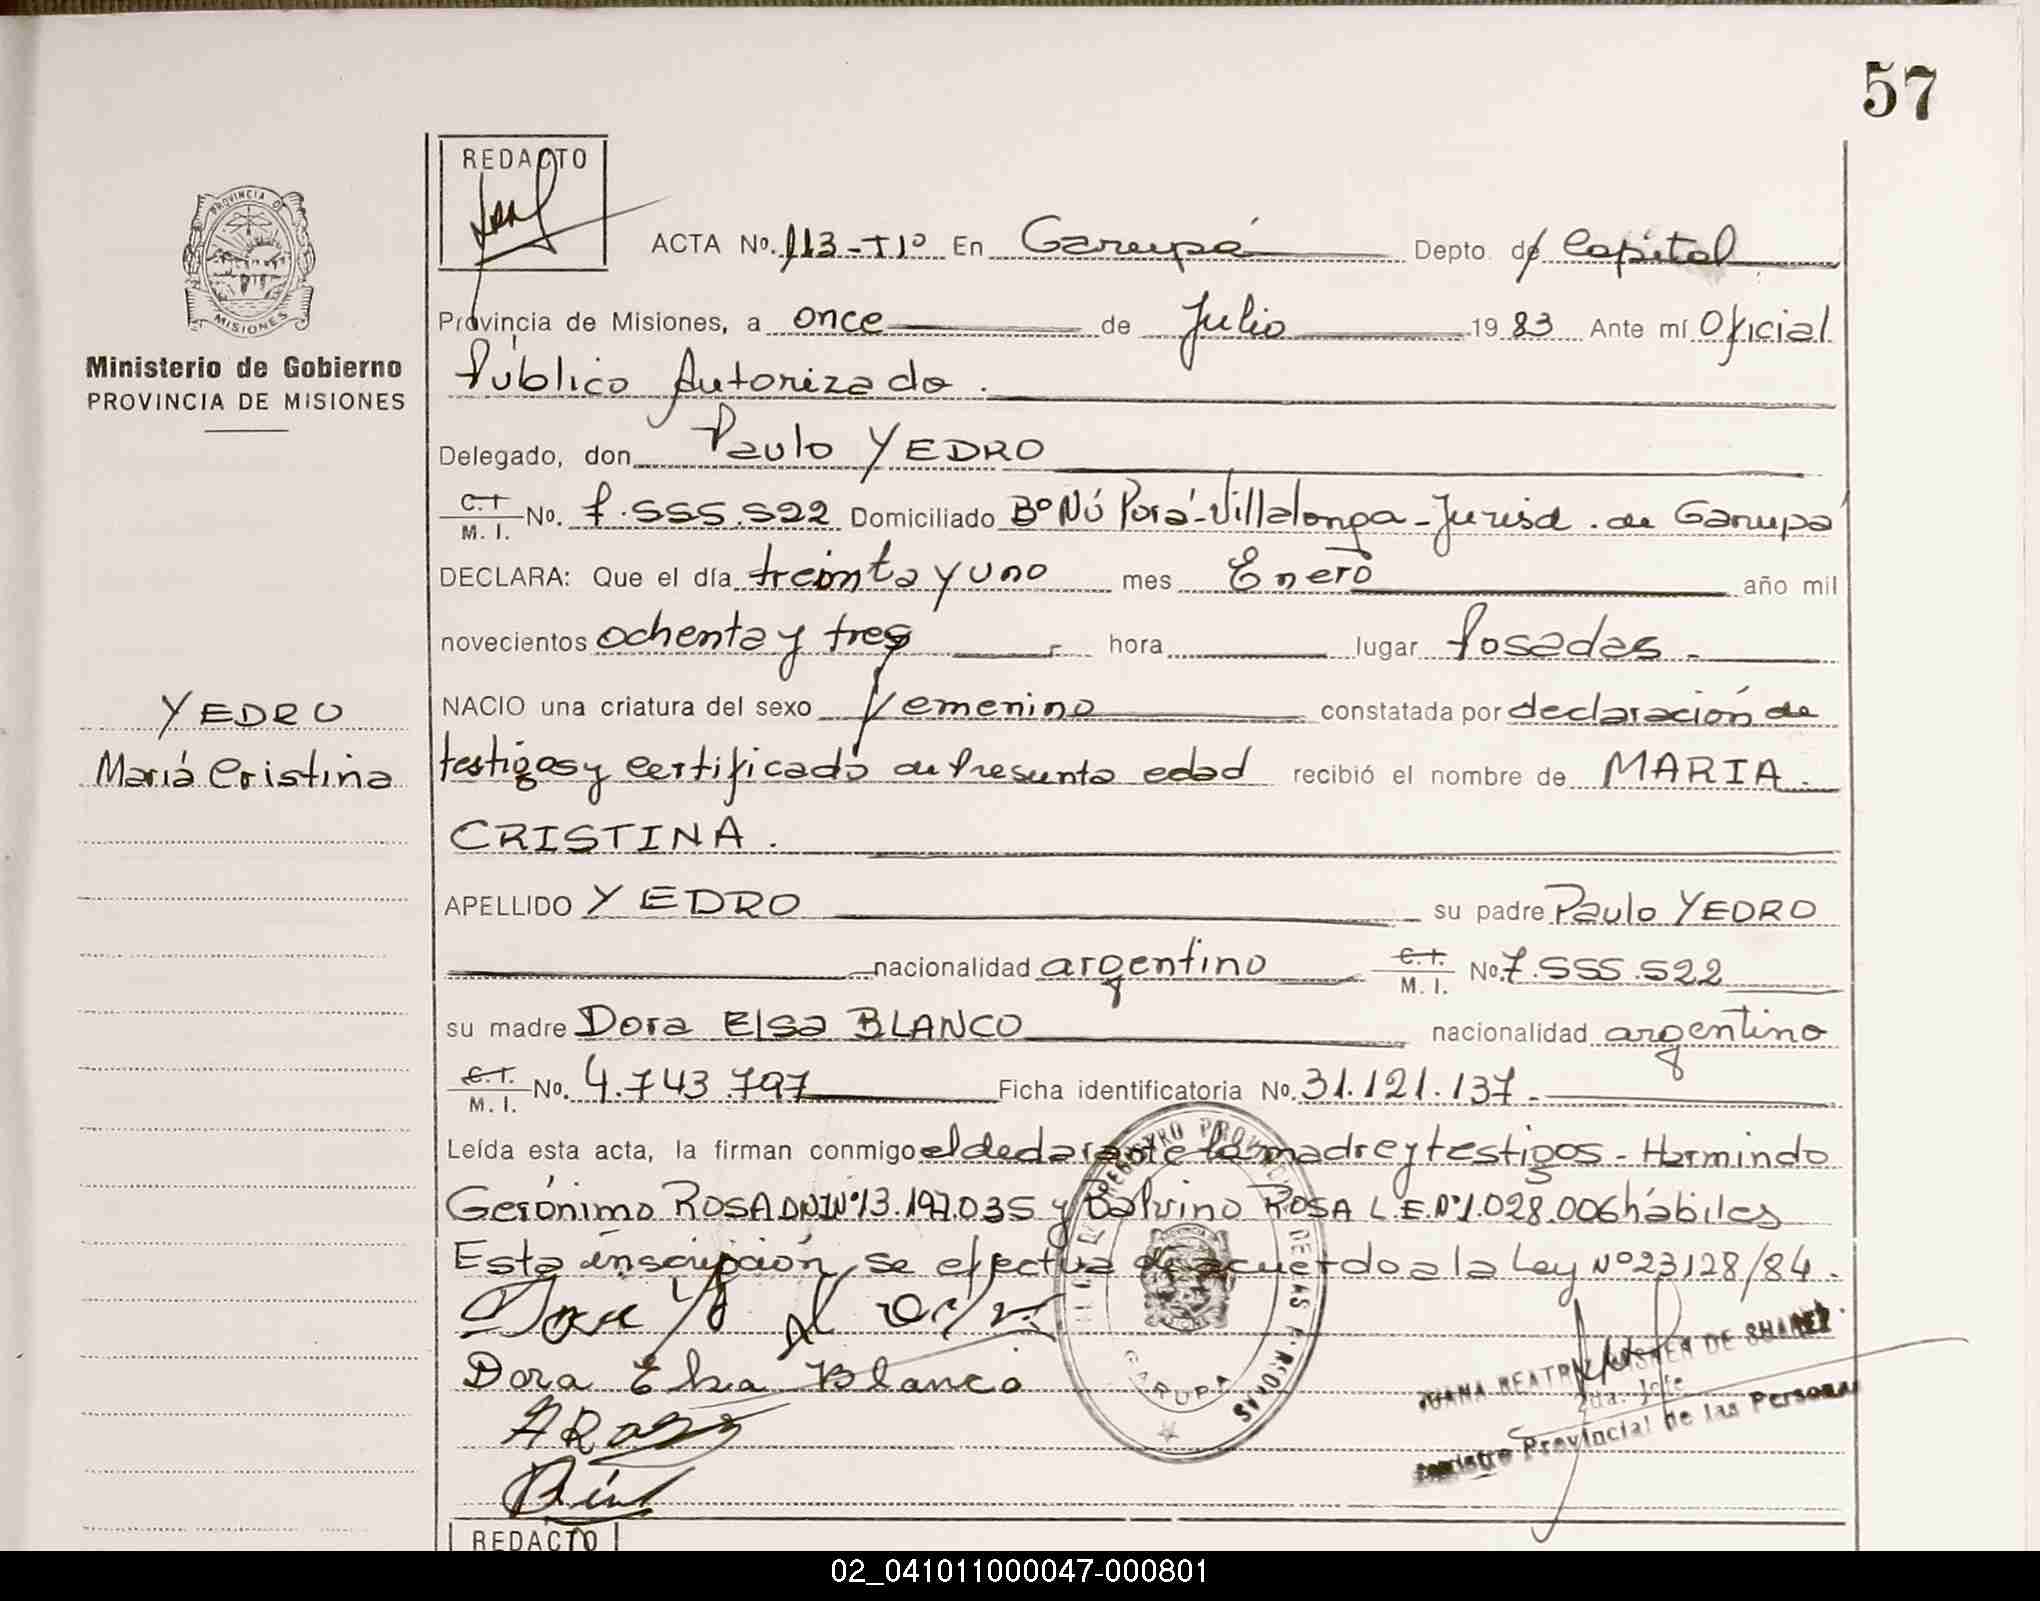 57
REDACTO
PROVINCIA DE
MISIONES
Ministerio de Gobierno
PROVINCIA DE MISIONES
ACTA No. 113-T1º En Garupá Depto. de Capital
Provincia de Misiones, a once de Julio 1983 Ante mí Oficial
Público Autorizado.
Delegado, don Paulo YEDRO
C.I. M. I. No. 7.555.522 Domiciliado Bº Ñú Porá-Villalonga-Jurisd. de Garupá
DECLARA: Que el día treinta y uno mes Enero año mil
novecientos ochenta y tres hora lugar Posadas.
NACIO una criatura del sexo femenino constatada por declaración de
testigos y certificado de Presunta edad recibió el nombre de MARIA
CRISTINA.
YEDRO
María Cristina
APELLIDO YEDRO su padre Paulo YEDRO
nacionalidad argentino C.I. M. I. No. 7.555.522
su madre Dora Elsa BLANCO nacionalidad argentino
C.I. M. I. No. 4.743.797 Ficha identificatoria No. 31.121.137.
Leída esta acta, la firman conmigo el declarante la madre y testigos - Hermindo
Gerónimo ROSA DNI Nº 13.197.035 y Balvino ROSA L.E. Nº 1.028.006 hábiles
Esta inscripción se efectua de acuerdo a la Ley Nº 23128/84.
Dora Elsa Blanco
REGISTRO PROVINCIAL DE LAS PERSONAS
GARUPA
JUANA BEATRIZ DE SUAREZ
2da. Jefe
Registro Provincial de las Personas
REDACTO
02_041011000047-000801